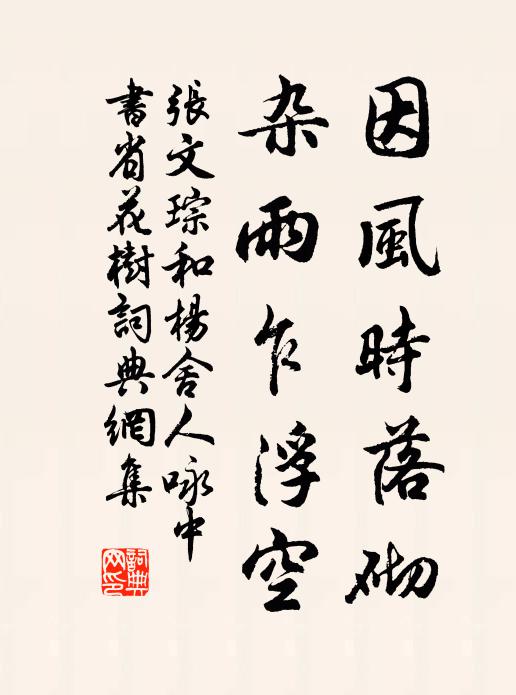 因風時落砌
杂雨乍浮空
張文琮和楊舍人咏中
書省花樹詞典網集
詞典
网印